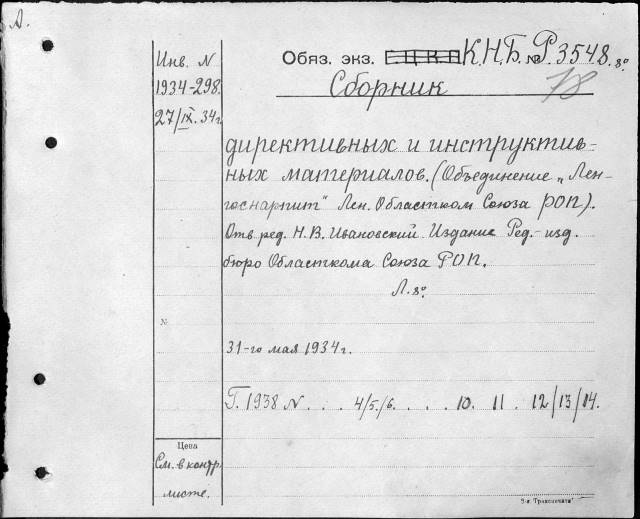 А.
Инв. N
1934-298.
27/IX.34г.
Обяз. экз. Е Ц К П К.Н.Б. № Р3548.8°
Сборник 78
директивных и инструктив-
ных материалов. (Объединение „Лен-
госнарпит" Лен. Областком Союза РОП).
Отв. ред. Н.В. Ивановский Издание Ред.-изд.
бюро Областкома Союза РОП.
Л. 8°.
№
31-го мая 1934 г.
Г. 1938 N . . . 4/5./6. . . . 10. 11 . 12/13/14.
Цена
См. в контр.
листе.
3-я Транспечать